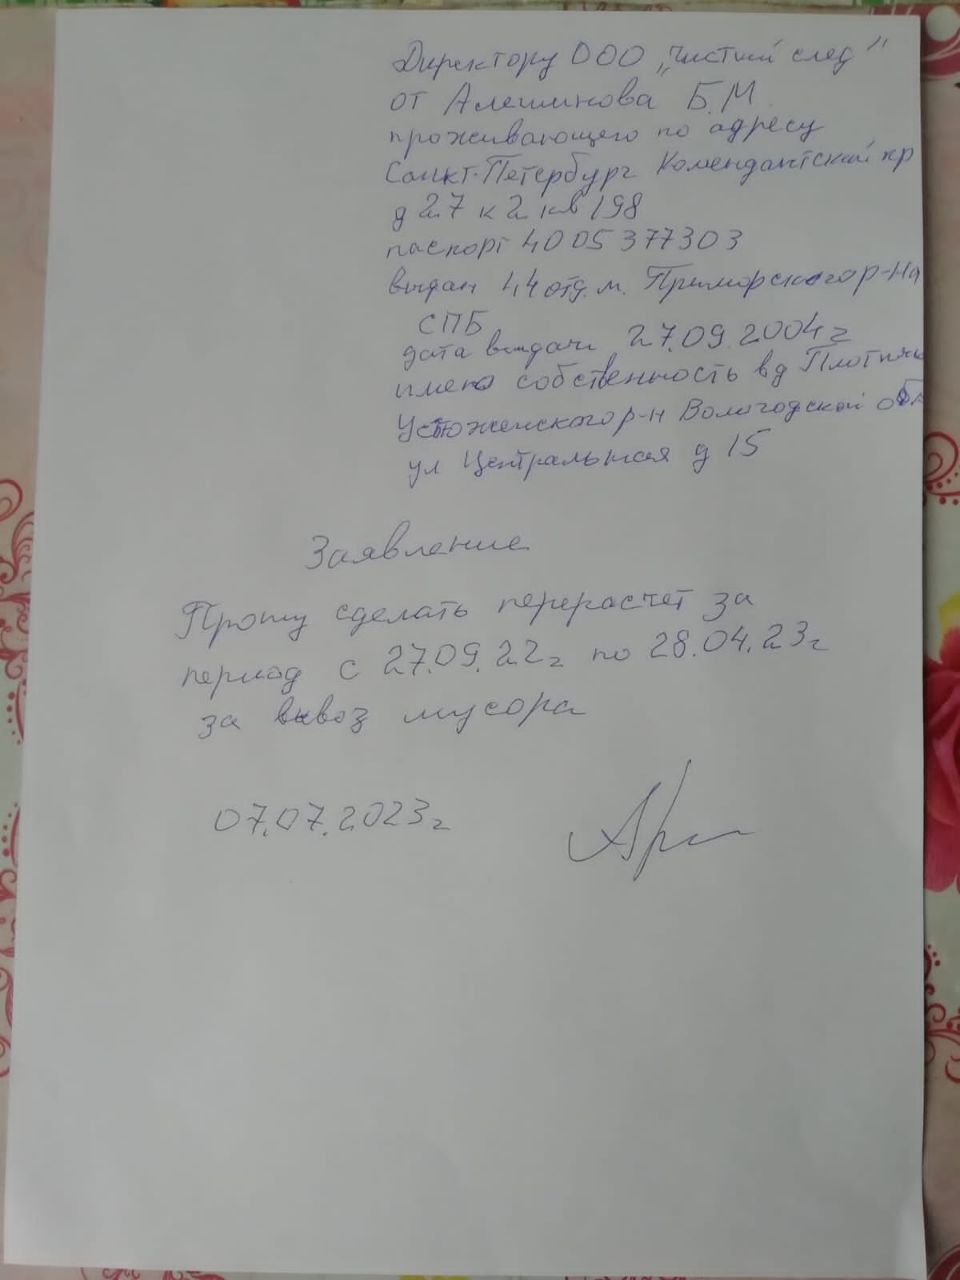 Директору ООО „Чистый след"
от Алешинова Б.М.
проживающего по адресу
Санкт-Петербург Комендантский пр
д 27 к 2 кв 198
паспорт 4005 377303
выдан 44 отд. м. Приморского р-на
СПБ
дата выдачи 27.09.2004 г
имею собственность в д Плотичье
Устюженского р-н Вологодской обл
ул Центральная д 15
Заявление
Прошу сделать перерасчет за
период с 27.09.22г по 28.04.23г
за вывоз мусора
07.07.2023г